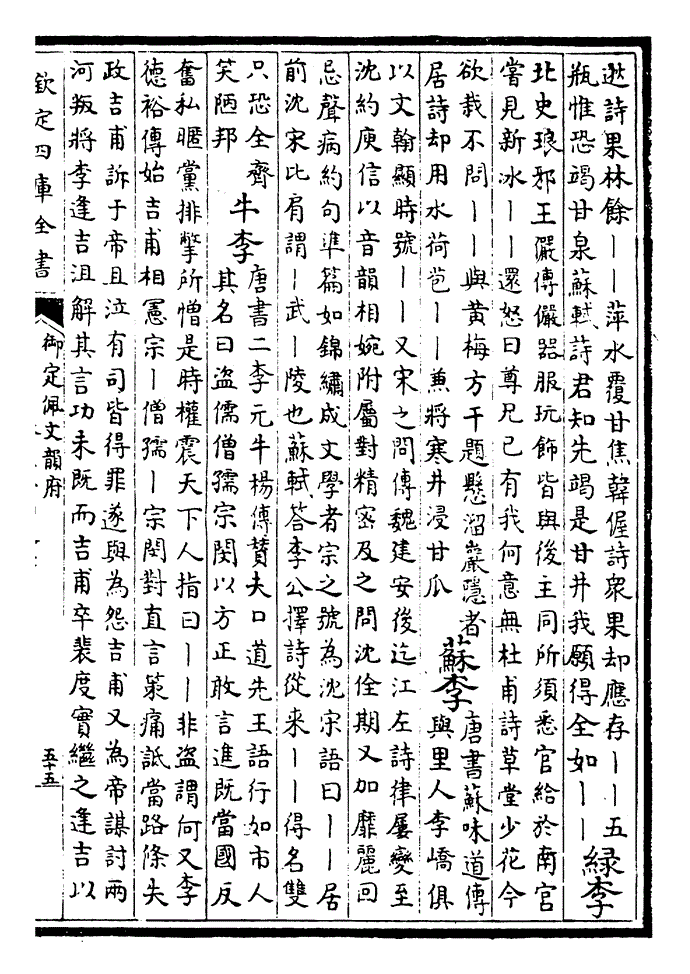 逖詩果林餘丨丨萍水覆甘焦韓偓詩衆果却應存丨丨五
瓶惟恐竭甘泉蘇軾詩君知先竭是甘井我願得全如丨丨緑李
北史琅邪王儼傳儼器服玩飾皆與後主同所須悉官給於南官
嘗見新冰丨丨還怒曰尊兄已有我何意無杜甫詩草堂少花今
欲栽不問丨丨與黄梅方干題懸溜巖隱者
居詩却用水荷苞丨丨兼將寒井浸甘瓜
蘇李
唐書蘇味道傳
與里人李嶠俱
以文翰顯時號丨丨又宋之問傳魏建安後迄江左詩律屢變至
沈約庾信以音韻相婉附屬對精密及之問沈佺期又加靡麗回
忌聲病約句凖篇如錦繡成文學者宗之號為沈宋語曰丨丨居
前沈宋比肩謂丨武丨陵也蘇軾答李公擇詩從来丨丨得名雙
只恐全齊
笑陋邦
牛李
唐書二李元牛楊傳贊夫口道先王語行如市人
其名曰盗儒僧孺宗閔以方正敢言進既當國反
奮私暱黨排擊所憎是時權震天下人指曰丨丨非盗謂何又李
德裕傳始吉甫相憲宗丨僧孺丨宗閔對直言策痛詆當路條失
政吉甫訴于帝且泣有司皆得罪遂與為怨吉甫又為帝謀討兩
河叛將李逢吉沮解其言功未既而吉甫卒裴度實繼之逢吉以
欽定四庫全書
御定佩文韻府
五十五